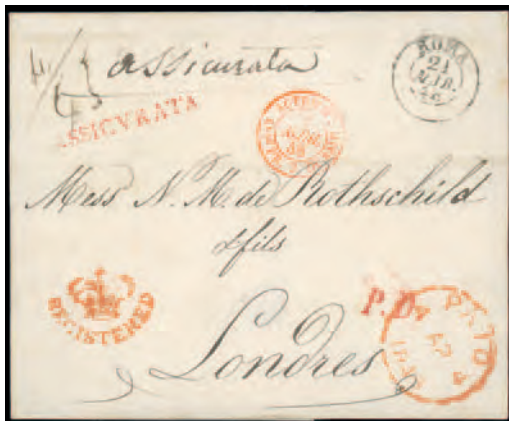 assicurata
ROMA
21
MAR.
ASSICVRATA
Mess N. M. de Rothschild
& fils
REGISTERED
P.D.
PAID
Londres